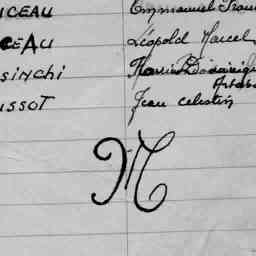 NCEAU Emmanuel Fran
CEAU Léopold Marcel
SINCHI Dominique
USSOT Jean Célestin
M